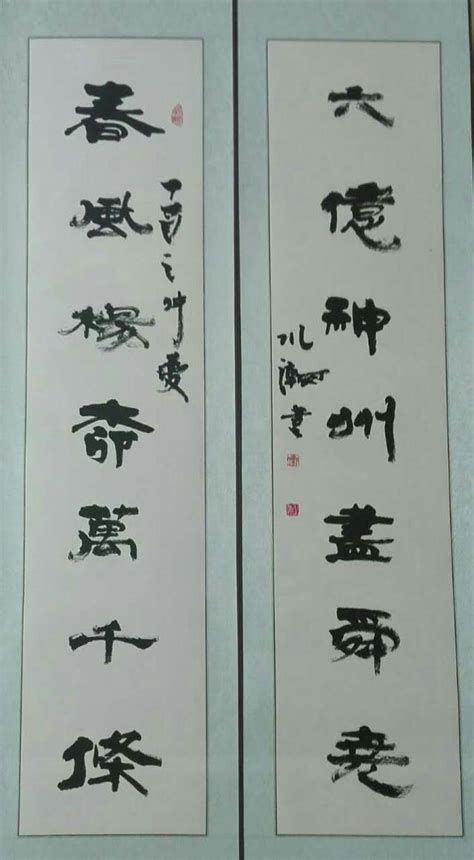 春風楊柳萬千條
丁酉之仲夏
六億神州盡舜堯
書